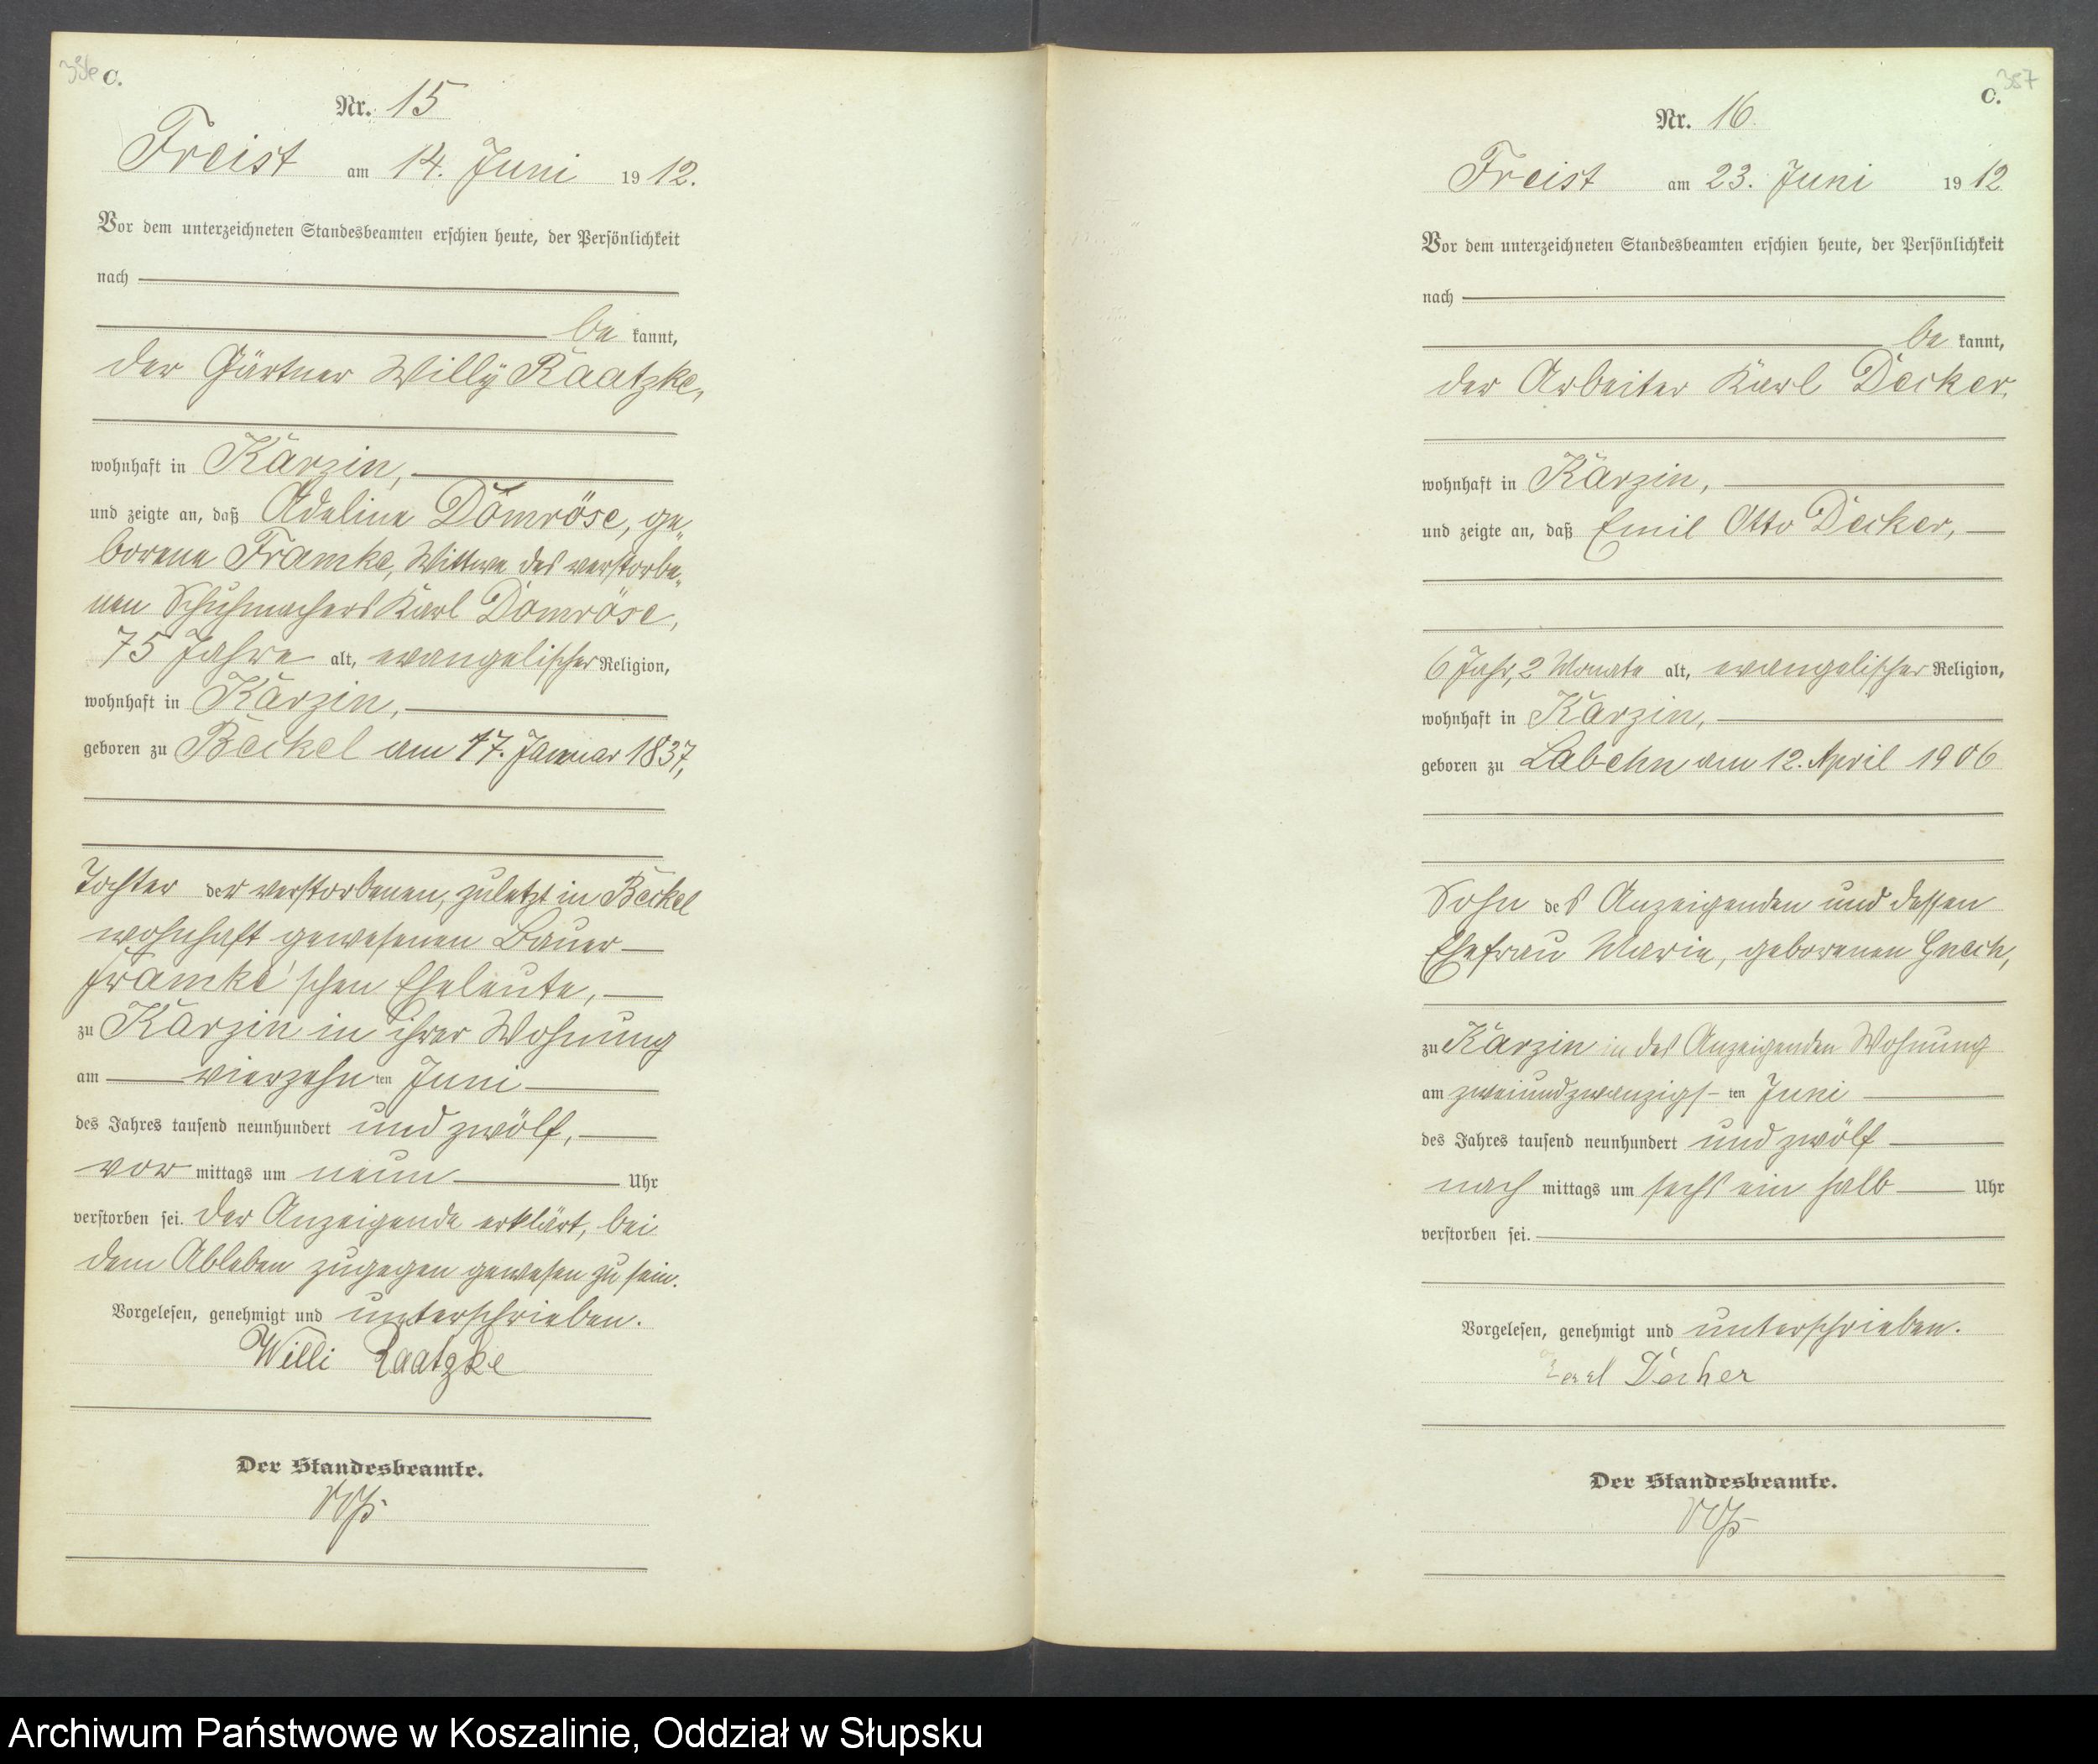 C.
Nr. 15
Freist am 14. Juni 1912.
Vor dem unterzeichneten Standesbeamten erschien heute, der Persönlichkeit
nach
be kannt,
der Gärtner Willÿ Raatzke,
wohnhaft in Karzin,
und zeigte an, daß Adeline Domröse, ge„
borene Framke, Wittwe des verstorbe„
nen Schuhmachers Karl Domröse,
75 Jahre alt, evangelischer Religion,
wohnhaft in Karzin,
geboren zu Beckel am 17. Januar 1837,
Tochter der verstorbenen, zuletzt in Beckel
wohnhaft gewesenen Bauer
Framke'schen Eheleute,
zu Karzin in ihrer Wohnung
am vierzehnten Juni
des Jahres tausend neunhundert und zwölf,
vor mittags um neun Uhr
verstorben sei. Der Anzeigende erklärt, bei
dem Ableben zugegen gewesen zu sein.
Vorgelesen, genehmigt und unterschrieben.
Willi Raatzke
Der Standesbeamte.
387
C.
Nr. 16.
Freist am 23. Juni 1912
Vor dem unterzeichneten Standesbeamten erschien heute, der Persönlichkeit
nach
be kannt,
der Arbeiter Karl Decker,
wohnhaft in Karzin,
und zeigte an, daß Emil Otto Decker,
6 Jahr, 2 Monate alt, evangelischer Religion,
wohnhaft in Karzin,
geboren zu Labehn am 12. April 1906
Sohn des Anzeigenden und dessen
Ehefrau Marie, geborenen Gnech,
zu Karzin in des Anzeigenden Wohnung
am zweiundzwanzigs-ten Juni
des Jahres tausend neunhundert und zwölf
nach mittags um sechs ein halb Uhr
verstorben sei.
Vorgelesen, genehmigt und unterschrieben.
Karl Decker
Der Standesbeamte.
Archiwum Państwowe w Koszalinie, Oddział w Słupsku